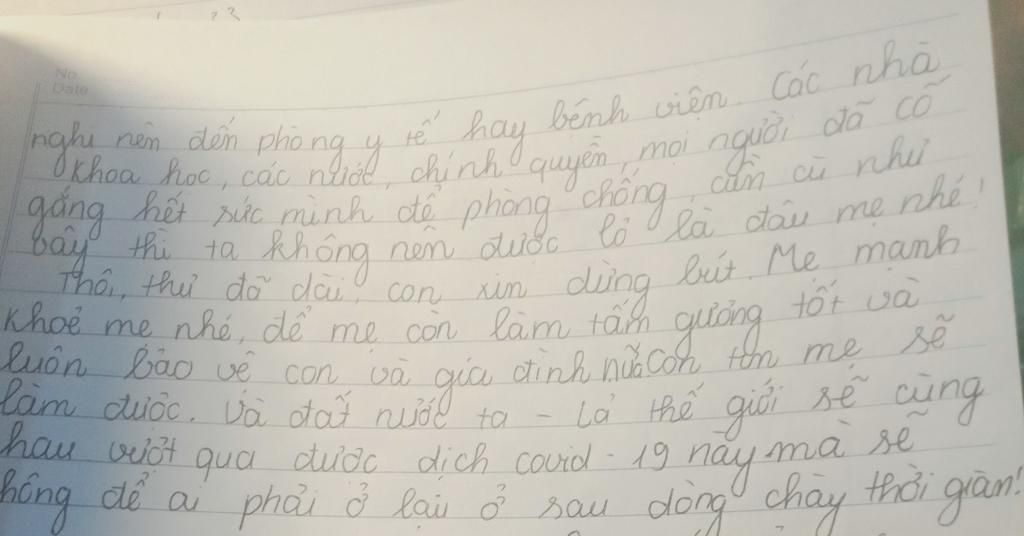 No.
Date
nghi nên đến phòng y tế hay bệnh viện. Các nhà
khoa học, các nước, chính quyền, mọi người đã cố
gắng hết sức mình để phòng chống, cần cù như
bây thì ta không nên được lơ là đâu mẹ nhé!
Thôi, thư đã dài, con xin dừng bút. Mẹ mạnh
khoẻ mẹ nhé, để mẹ còn làm tấm gương tốt và
luôn bảo vệ con và gia đình nữa con tin mẹ sẽ
làm được. Và đất nước ta - cả thế giới sẽ cùng
hau vượt qua được dịch covid - 19 này mà sẽ
hông để ai phải ở lại ở sau dòng chảy thời gian!